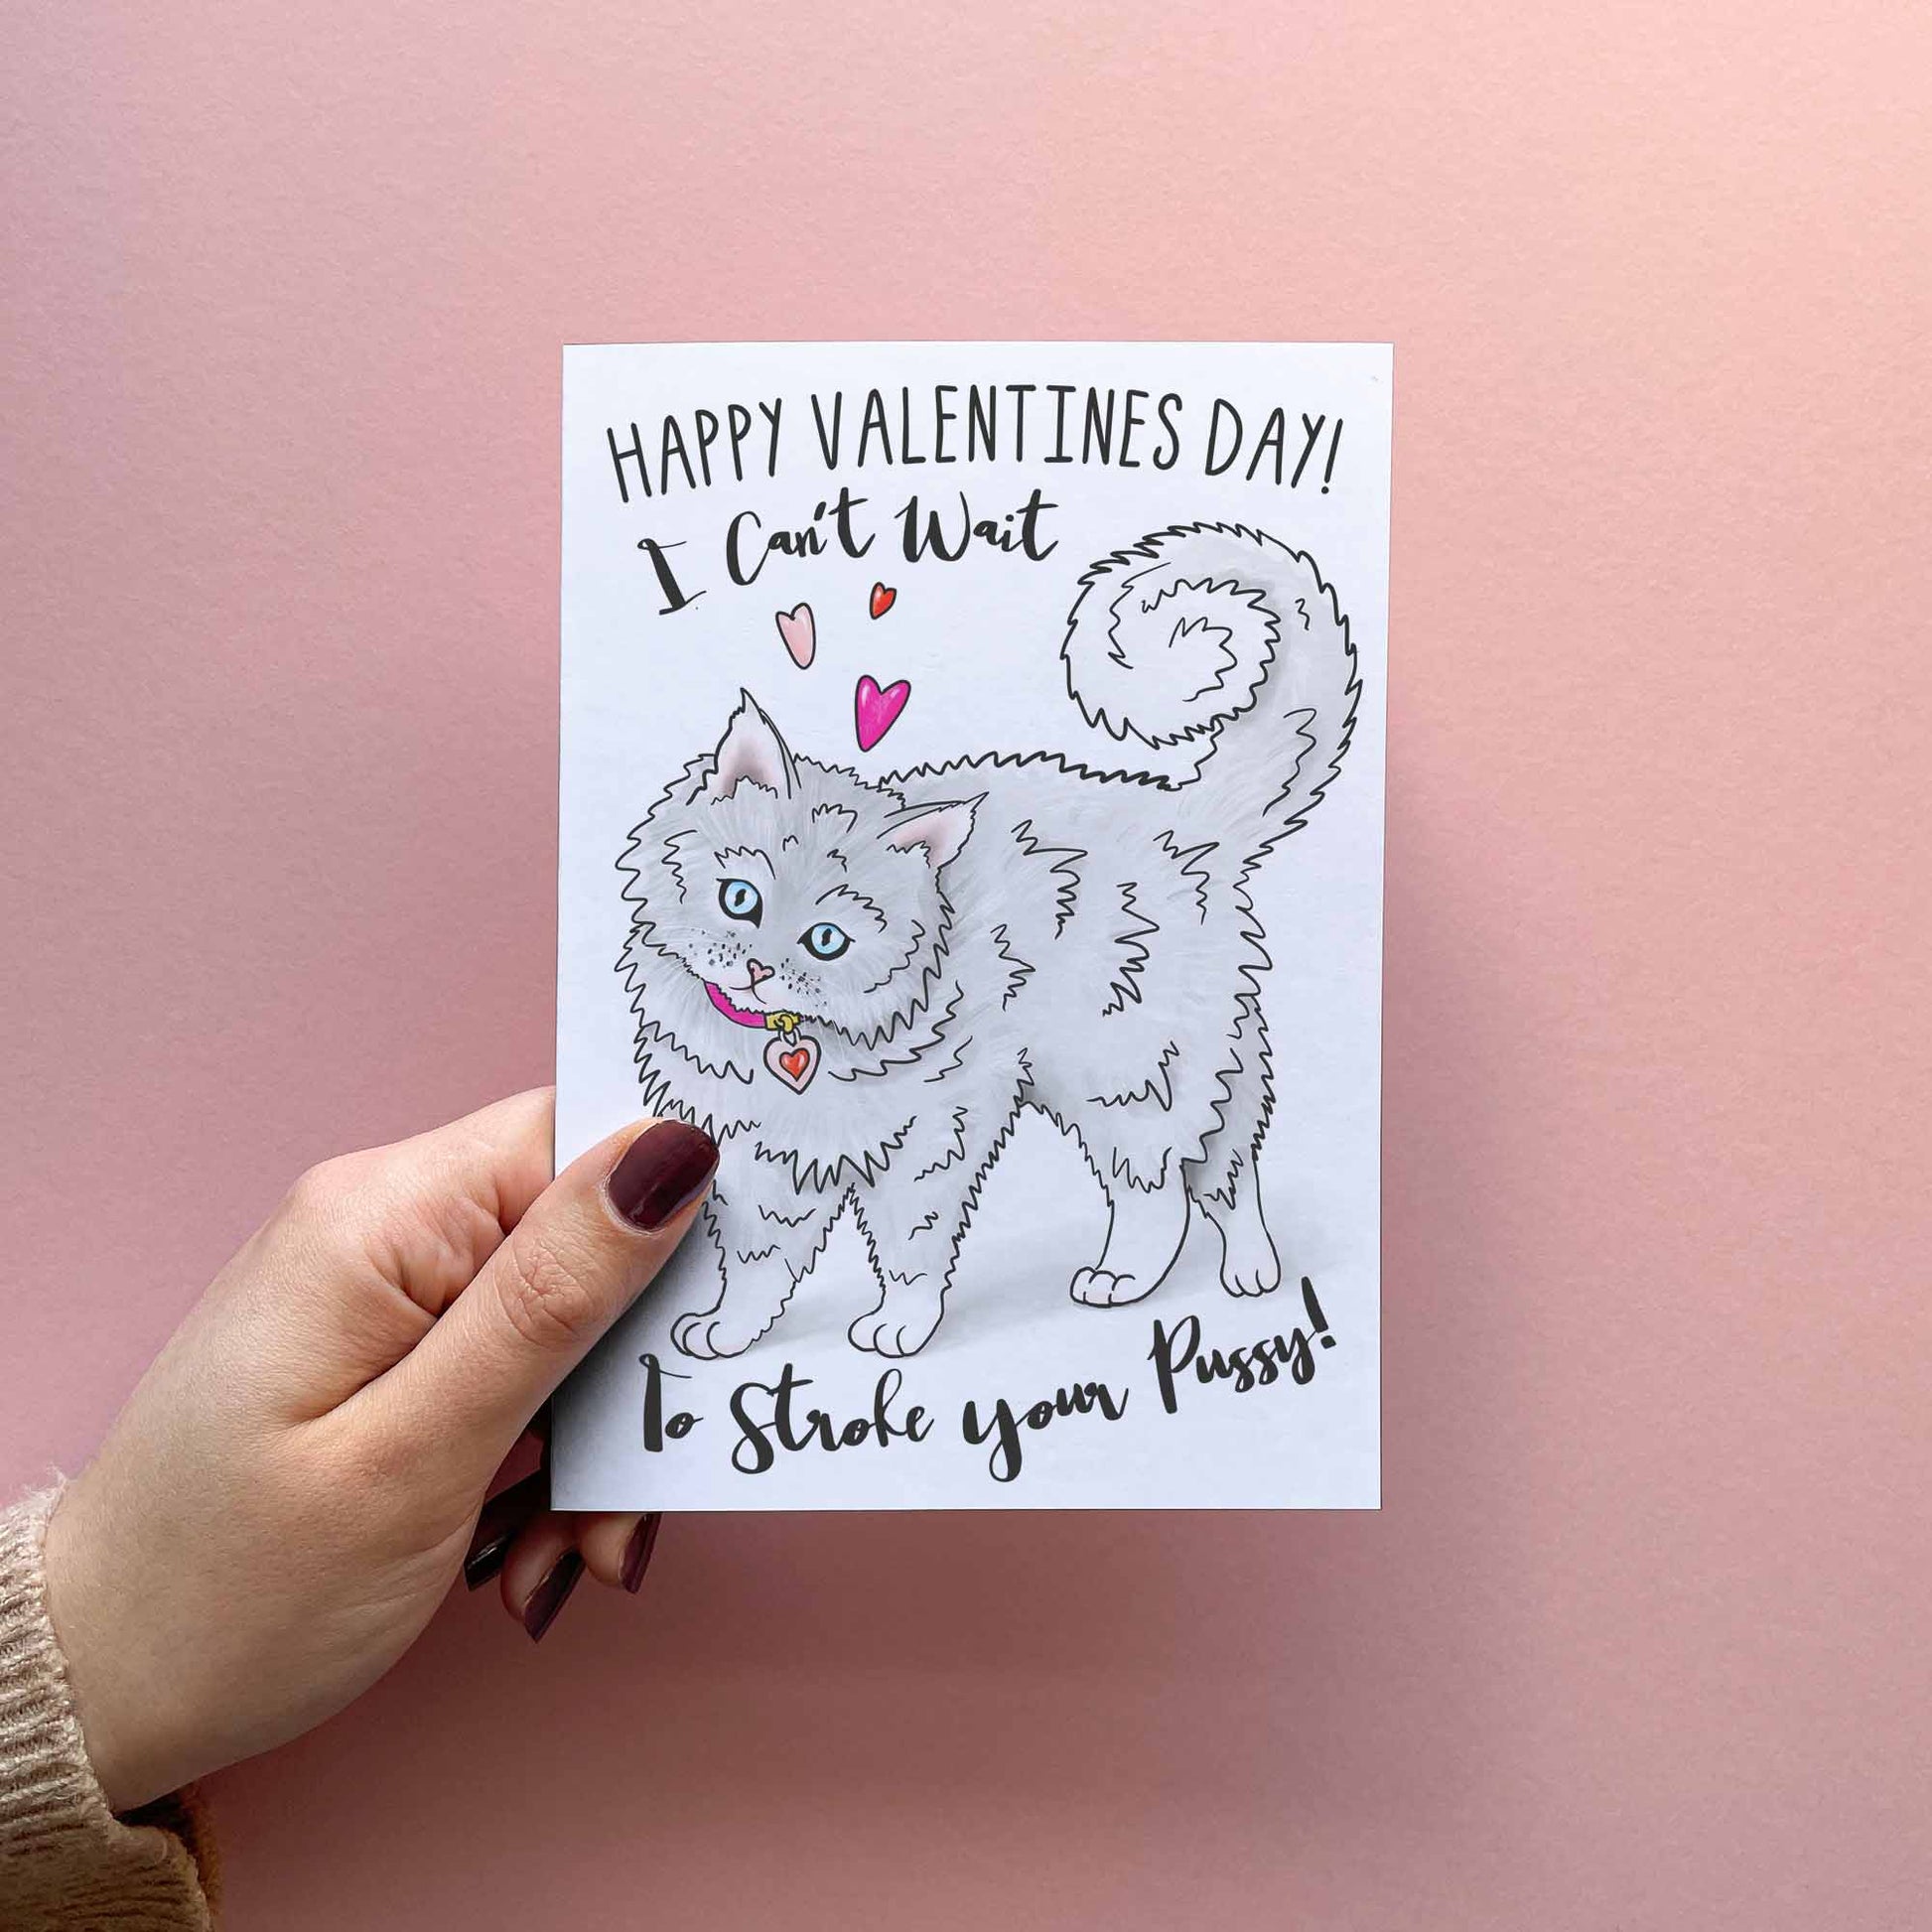 HAPPY VALENTINES DAY!
I Can't Wait
To Stroke your Pussy!